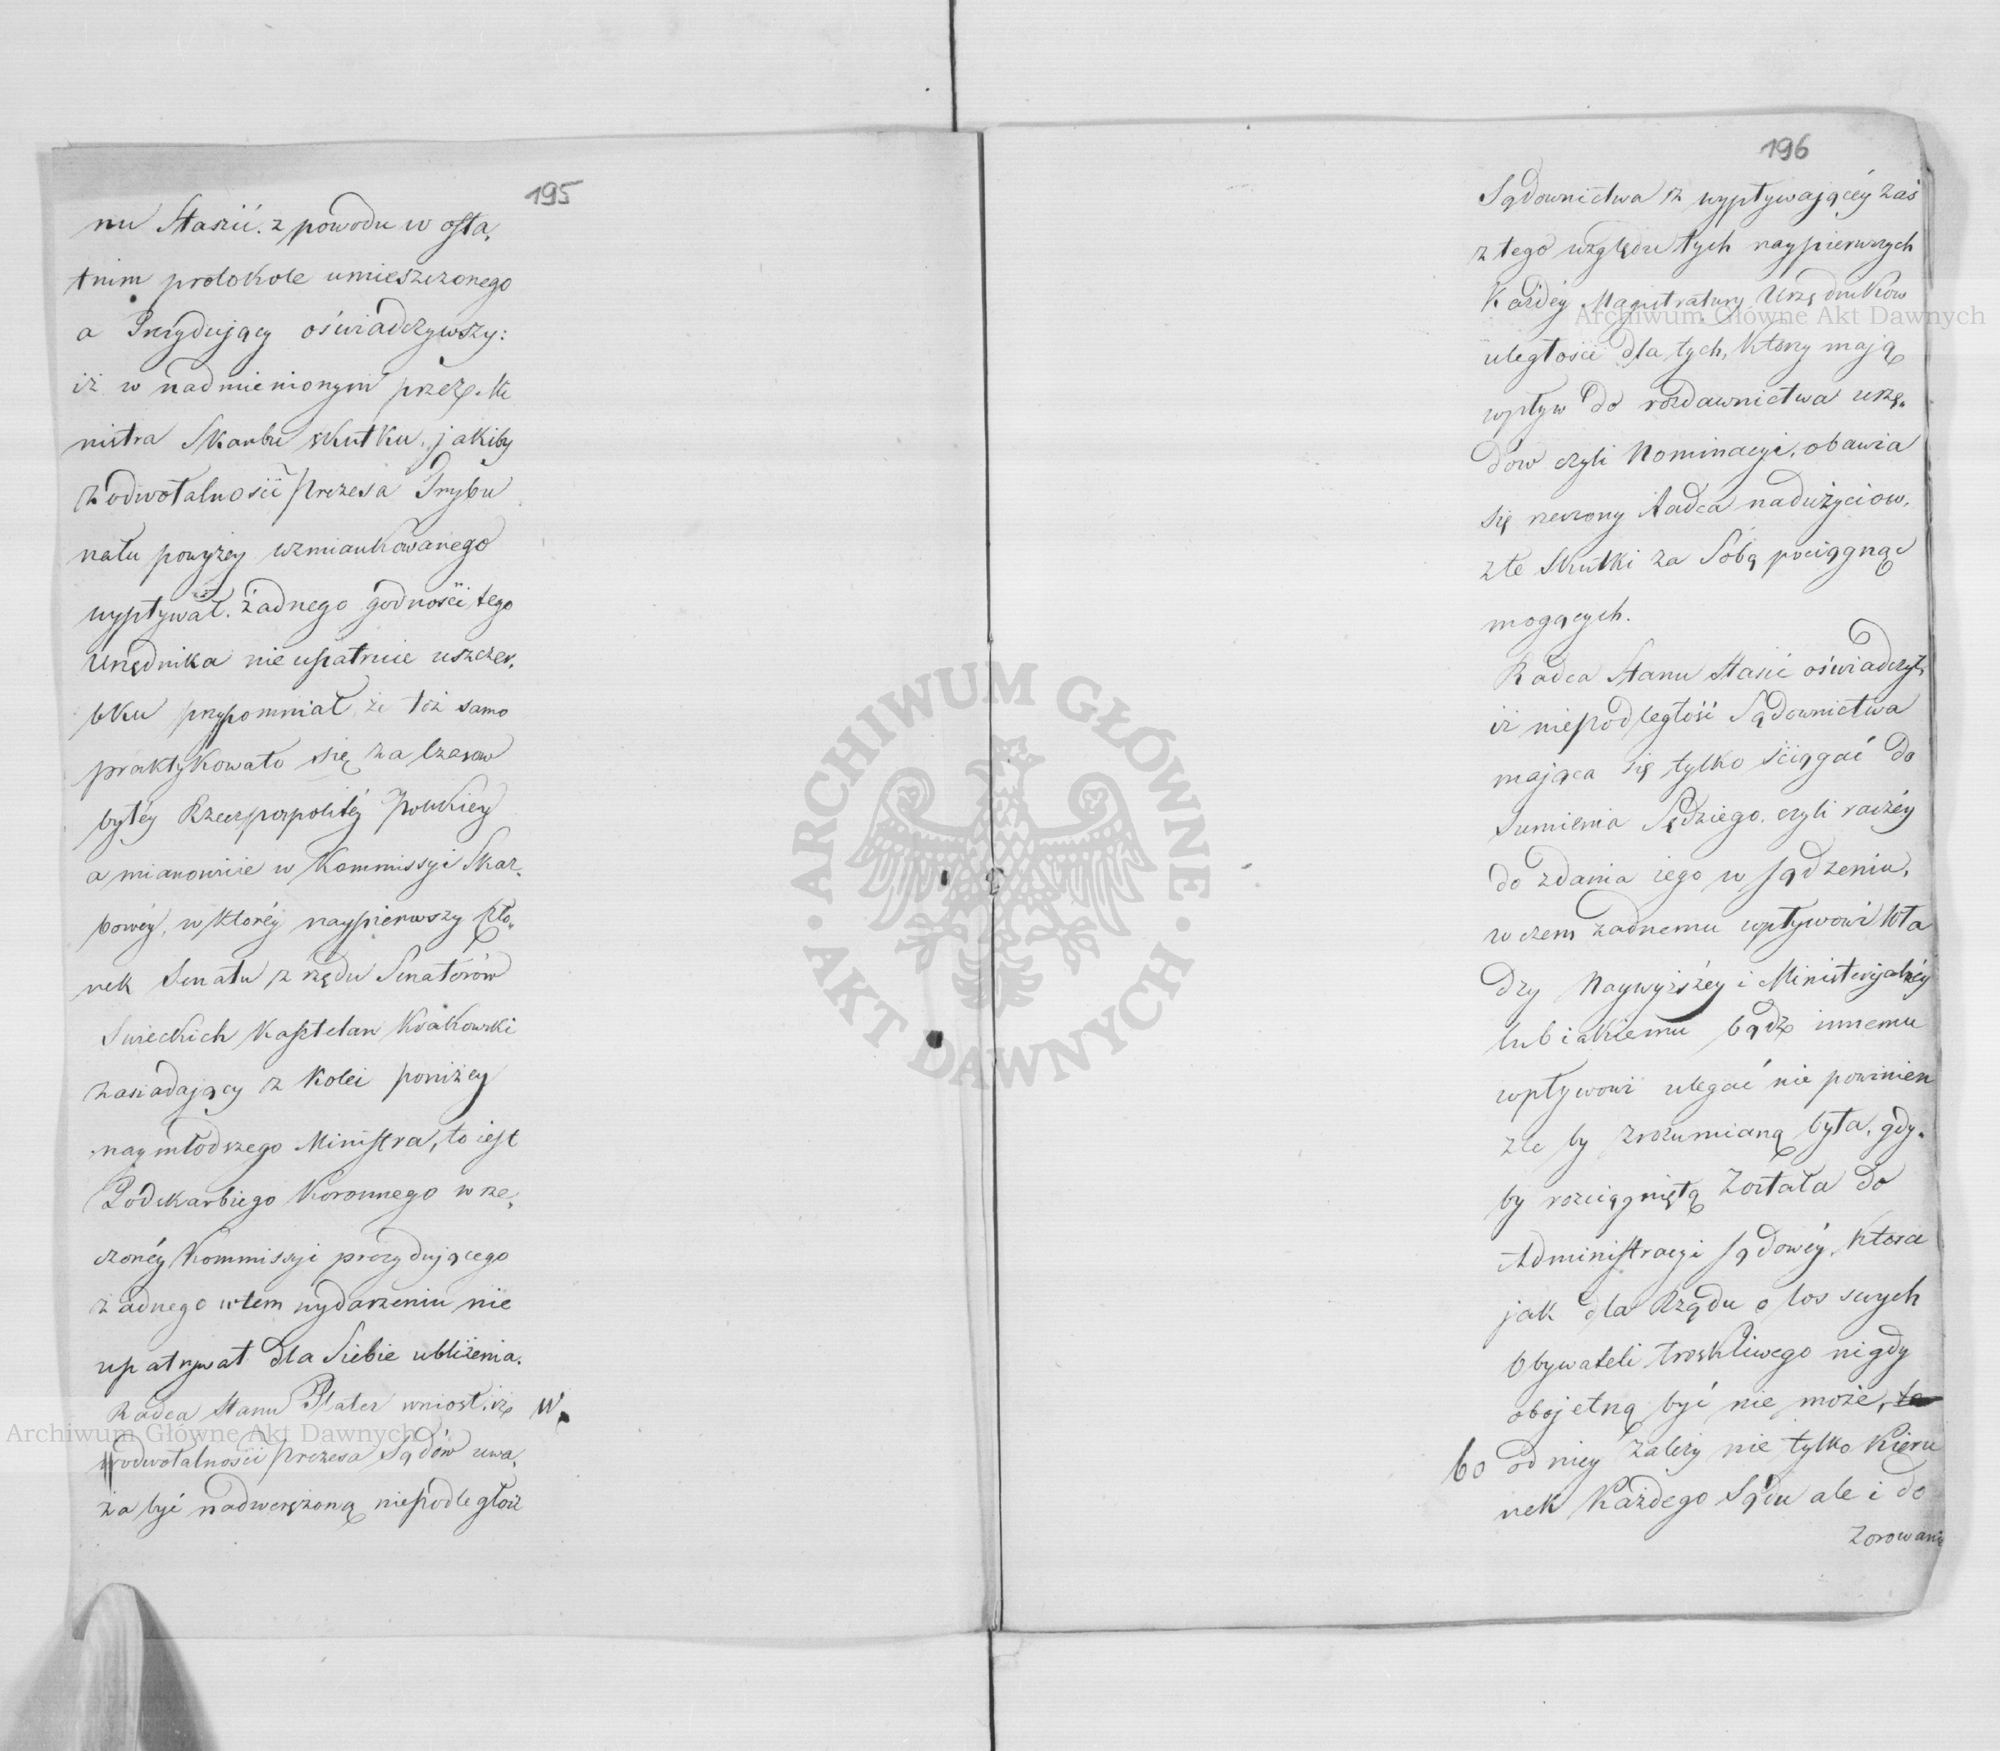 195
nu Stasic. z powodu w osta,
tnim protokole umieszczonego
a Prezydujący oświadczywszy:
iż w nadmienionym przez Mi
nistra Skarbu skutku, jakiby
z odwołalności Prezesa Trybu
nału powyżey wzmiankowanego
wypływał. żadnego godności tego
Urzędnika nie upatruie uszczer,
bku przypomniał, że też samo
praktykowało się za Czasow
byłéy Rzeczpospolitéy Polskiey
a mianowicie w Kommissyi Skar,
bowéy, w któréy naypierwszy Czło,
nek Senatu z rzędu Senatórów
Swieckich Kasztelan Krakowski
zasiadający z Kolei poniżey
naymłodszego Ministra, to iest
Podskarbiego Koronnego w rze,
czonéy Kommissyi prezydującego
żadnego w tem wydarzeniu nie
upatrywał dla Siebie ubliżenia.
Radca Stanu Plater wniosł. iż w
odwołalności Prezesa Sądów uwa,
ża być nadwerężoną niepodległość
196
Sądownictwa z wypływającéy zaś
z tego względu tych naypierwszych
Każdéy Magistratury Urzędników
uległości dla tych, Którzy mają
wpływ do rozdawnictwa urzę,
dów czyli Nominacyi, obawia
się rzeczony Radca nadużyciow,
złe Skutki za Sobą pociągnąć
mogących.
Radca Stanu Stasic oświadczył,
iż niepodległość Sądownictwa
mająca się tylko ściągać do
Sumienia Sędziego, czyli raczéy
do zdania iego w sądzeniu,
w czem żadnemu wpływowi Wła
dzy Naywyższéy i Ministeryalnéy
lub iakiemu bądź innemu
wpływowi ulegać nie powinien
źle by zrozumianą była, gdy,
by rozciągniętą została do
Administracyi sądowéy, Która
jak dla Rządu o los swych
Obywateli troskliwego nigdy
obojętną być nie może,
bo od niey zależy nie tylko Kieru
nek Każdego Sądu ale i do
zorowani
Archiwum Główne Akt Dawnych
Archiwum Główne Akt Dawnych
ARCHIWUM GŁÓWNE
AKT DAWNYCH